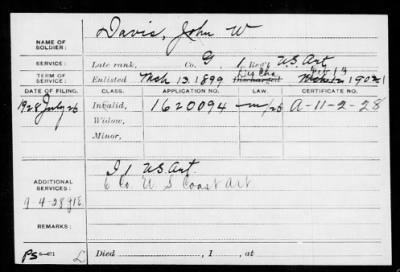 NAME OF SOLDIER: Davis, John W
SERVICE: Late rank, Co. G 1 Reg't U.S. Art
Dis Cha
TERM OF SERVICE: Enlisted Mch 13, 1899 190
DATE OF FILING. CLASS. APPLICATION NO. LAW. CERTIFICATE NO.
1928 July 26 Invalid, 1620094 A-11-2-28
Widow,
Minor,
ADDITIONAL SERVICES: I 1 U.S. Art.
6 Co. U S Coast Art
9-4-28
REMARKS:
Died , 1 , at